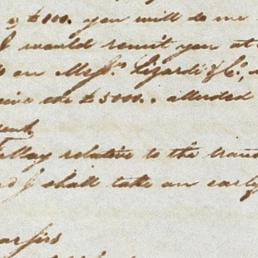 $000. you will do me
I would remit you at
on Messrs. Lizardi & Co,
me $5000., alluded
relative to the trans
I shall take an early